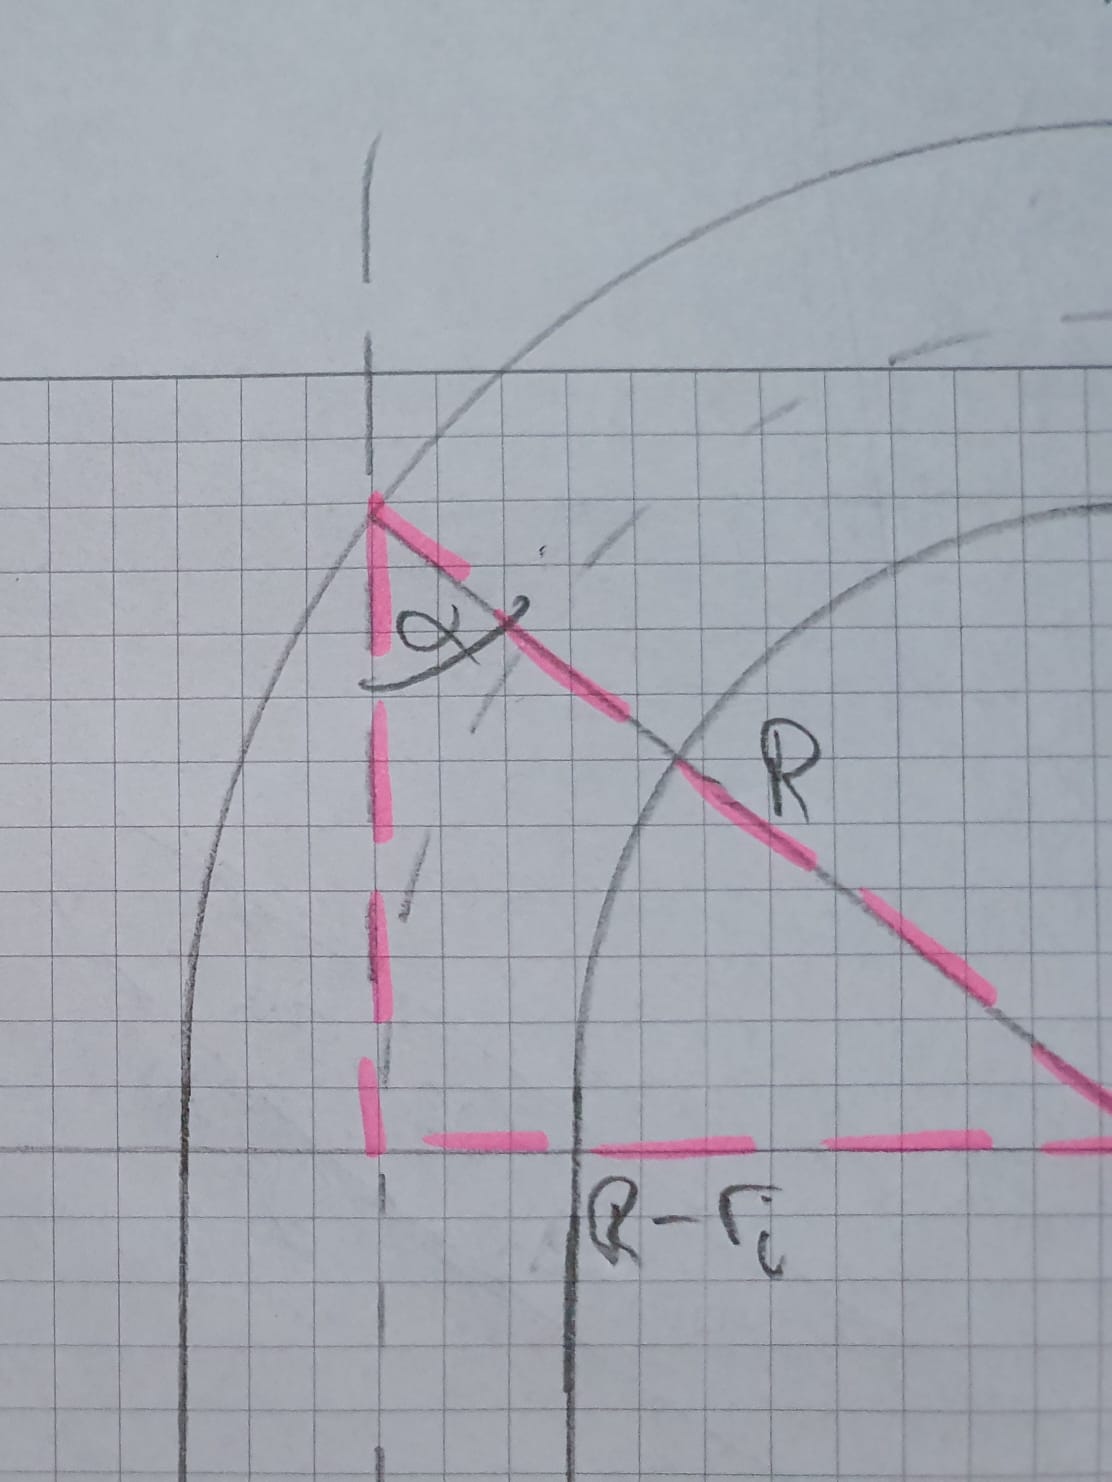 α
R
R - ri